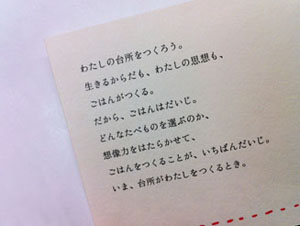 わたしの台所をつくろう。
生きるからだも、わたしの思想も、
ごはんがつくる。
だから、ごはんはだいじ。
どんなたべものを選ぶのか、
想像力をはたらかせて、
ごはんをつくることが、いちばんだいじ。
いま、台所がわたしをつくるとき。